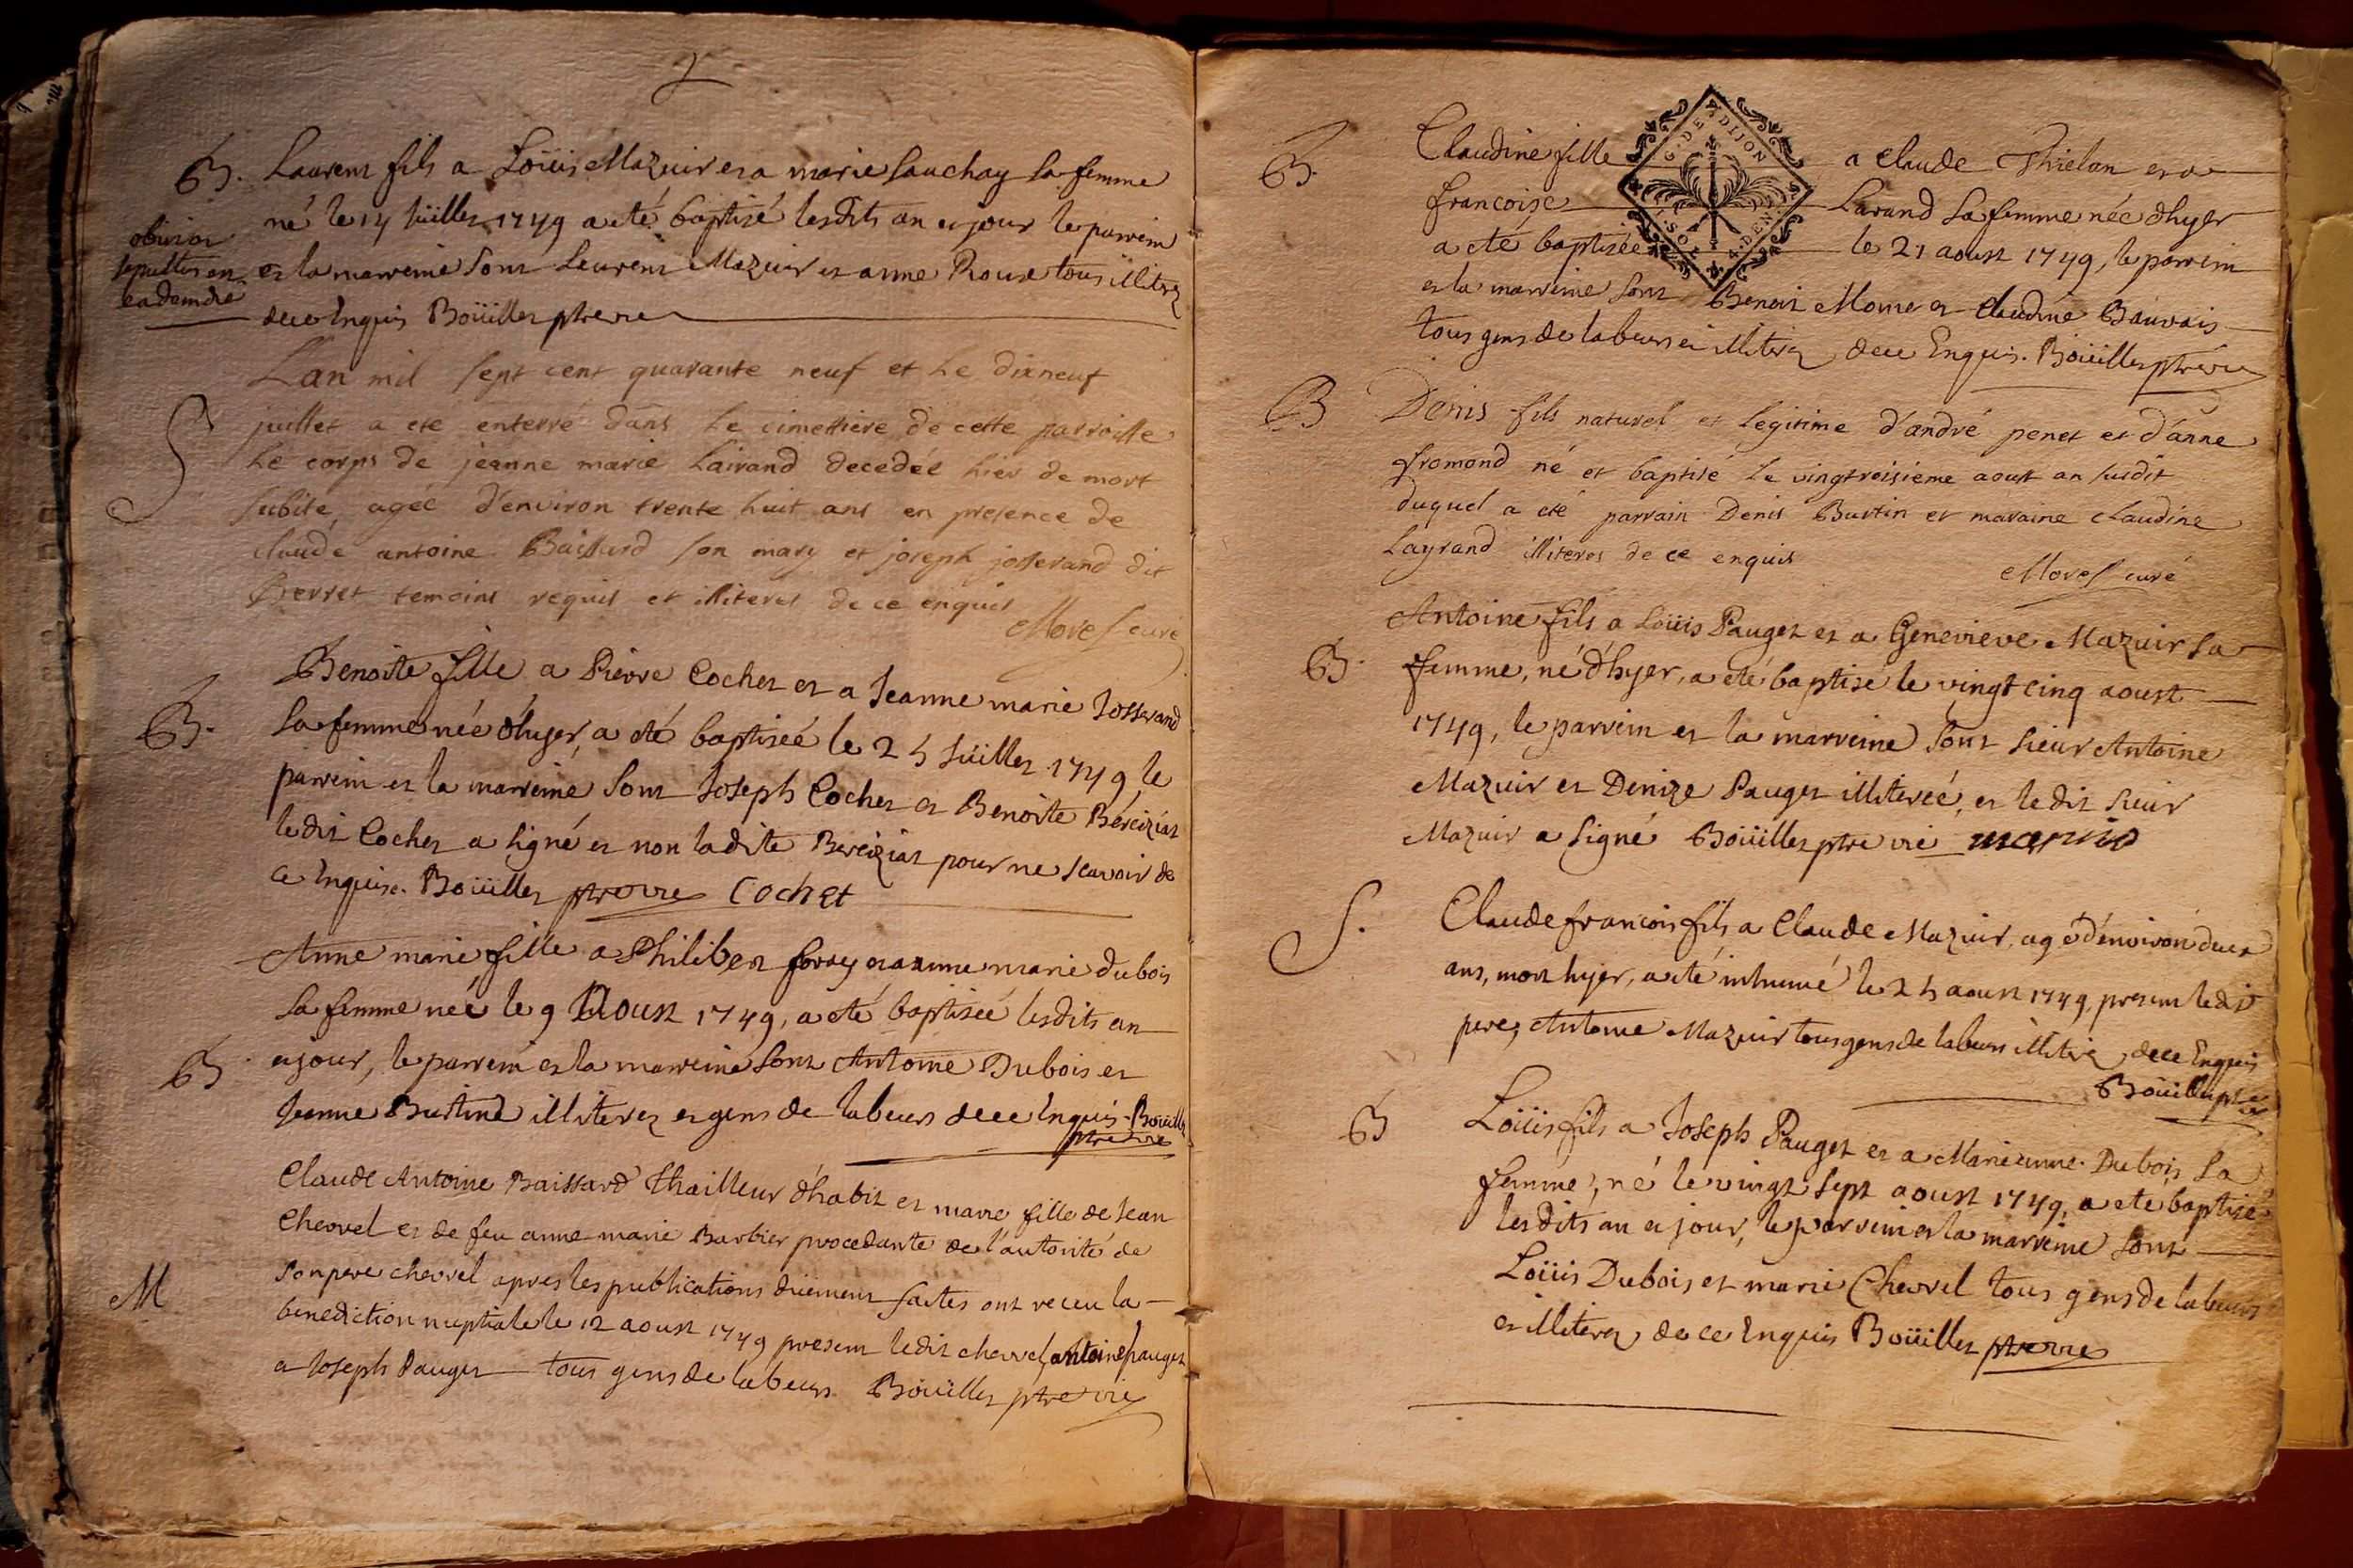 B. Laurent fils a Loüis Mazuir et a marie Sauchay Sa femme
né le 14 Juillet 1749 a eté baptizé lesdits an et jour le parrein
et la marreine Sont Laurent Mazuir et anne Roux tous illiterez
obiit et
sepultus an
eademdie
dece Enquis Boüillet ptre vre
Lan mil sept cent quarante neuf et Le dixneuf
S juillet a eté enterré dans Le cimettiere de cette parroisse
Le corps de jeanne marie Lairand decedée hier de mort
subite agée d'environ trente huit ans en presence de
claude antoine Baissard son mary et joseph josserand dit
Perret temoins requis et illiteres de ce enquis
Morel curé
Benoite fille a Pierre Cochet et a Jeanne marie Josserand
B. Sa femme née d'hyer, a eté baptiseé le 25 Juillet 1749, le
parrein et la marreine Sont Joseph Cochet et Benoite Béreiziat
ledit Cochet a Signé et non ladite Bereiziat pour ne scavoir de
ce Enquise. Boüillet ptre vre Cochet
Anne marie fille a Philibert forray et a anne marie dubois
Sa femme neé le 9 Aoust 1749, a eté baptiseé lesdits an
B et jour, le parrein et la marreine Sont Antoine Dubois et
Jeanne Burtind illiterez et gens de labeurs dece Enquis. Boüillet
ptre vre
Claude Antoine Baissard thailleur d'habit et marie fille de Jean
Chevrel et de feu anne marie Barbier procedante de l'autorité de
M Sonpere chevrel apres les publications düement faites ont receu la
benediction nuptiale le 12 aoust 1749 present ledit chevrel, antoine pauget
et Joseph Pauget tous gens de labeurs Boüillet ptre vre
G. DE DIJON
4. DEN.
B. Claudine fille a Claude Thielan et a
francoise Larand Sa femme née d'hyer
a eté baptisée le 21 aoust 1749, le parrein
et la marreine Sont Benoit Mome et Claudine Bauvais
tous gens de labeurs et illiterez dece Enquis. Boüillet ptre vre
B Denis fils naturel et legitime d'andré penet et d'anne
fromond né et baptisé le vingtroisieme aoust an susdit
duquel a eté parrain Denis Burtin et maraine claudine
Layrand illiteres de ce enquis
Morel curé
Antoine fils a Loüis Pauget et a Genevieve Mazuir Sa
B. femme, né d'hyer, a eté baptisé le vingt cinq aoust
1749, le parrein et la marreine Sont Sieur Antoine
Mazuir et Denize Pauget illitereé, et le dit Sieur
Mazuir a Signé Boüillet ptre vre mazuir
S. Claude francois fils a Claude Mazuir, agé d'environ deux
ans, mort hyer, a eté inhumé le 25 aoust 1749, present ledit
pere, Antoine Mazuir tous gens de labeurs illiterez, dece Enquis
Boüillet ptre vre
B Loüis fils a Joseph Pauget et a Marieanne Dubois Sa
femme, né le vingt Sept aoust 1749, a eté baptisé
lesdits an et jour, le parrein et la marreine Sont
Loüis Dubois et marie Chevrel tous gens de labeurs
et illiterez de ce Enquis Boüillet ptre vre